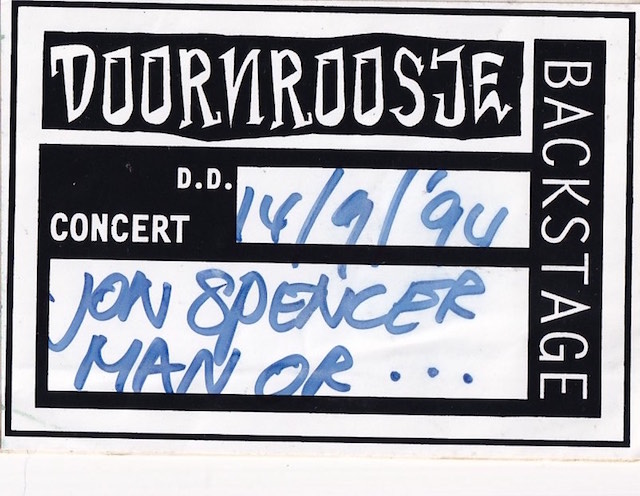 DOORNROOSJE
BACKSTAGE
D.D. 14/9/'94
CONCERT
JON SPENCER
MAN OR ...